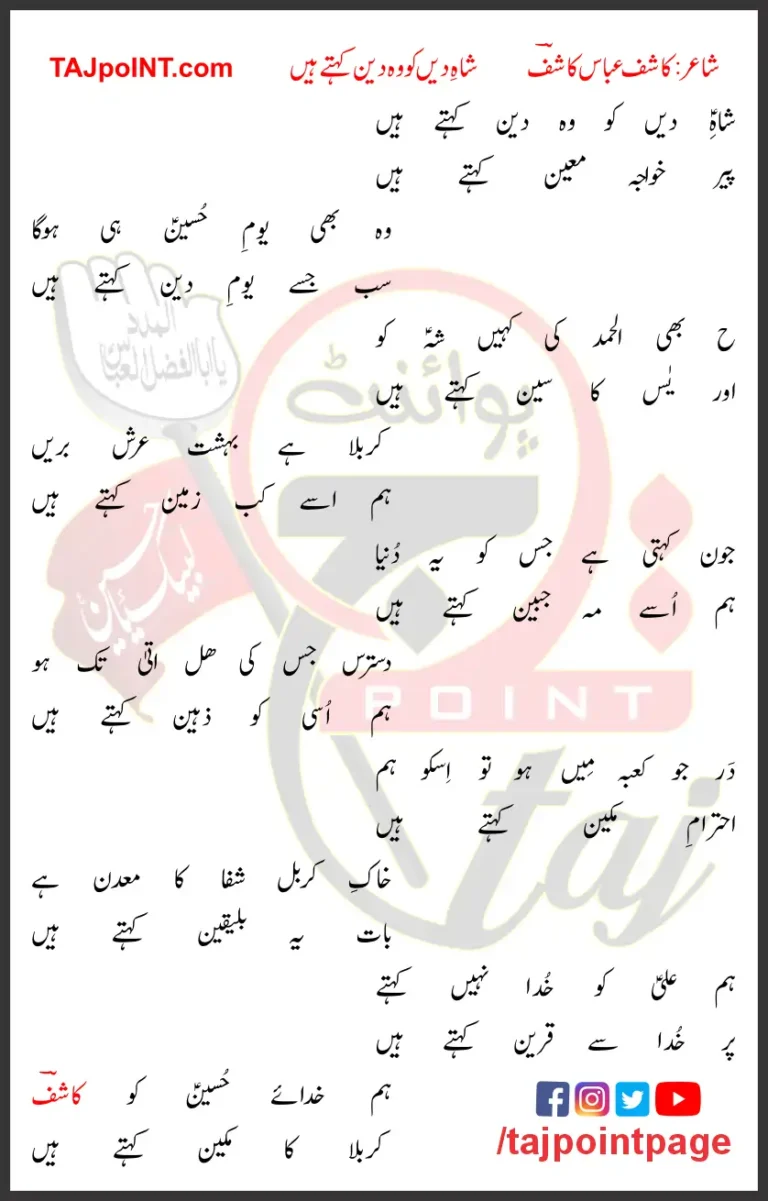 شاعر: کاشف عباس کاشفؔ شاہِ دیں کو وہ دین کہتے ہیں TAJpoINT.com
شاہِؑ دیں کو وہ دین کہتے ہیں
پیر خواجہ معین کہتے ہیں
وہ بھی یومِ حُسینؑ ہی ہوگا
سب جسے یومِ دین کہتے ہیں
ح بھی الحمد کی کہیں شہؑ کو
اور یٰس کا سین کہتے ہیں
کربلا ہے بہشت عرش بریں
ہم اسے کب زمین کہتے ہیں
جون کہتی ہے جس کو یہ دُنیا
ہم اُسے مہ جبین کہتے ہیں
دسترس جس کی ھل اتیٰ تک ہو
ہم اُسی کو ذہین کہتے ہیں
دَر جو کعبہ مِیں ہو تو اِسکو ہم
احترامِ مکین کہتے ہیں
خاکِ کربل شفا کا معدن ہے
بات یہ بلیقین کہتے ہیں
ہم علیؑ کو خُدا نہیں کہتے
پر خُدا سے قرین کہتے ہیں
ہم خدائے حُسینؑ کو کاشفؔ
کربلا کا مکین کہتے ہیں
/tajpointpage
المدد
یا ابا الفضل العباسؑ
لبیک یا حسینؑ
پوائنٹ
تاج
POINT
taj